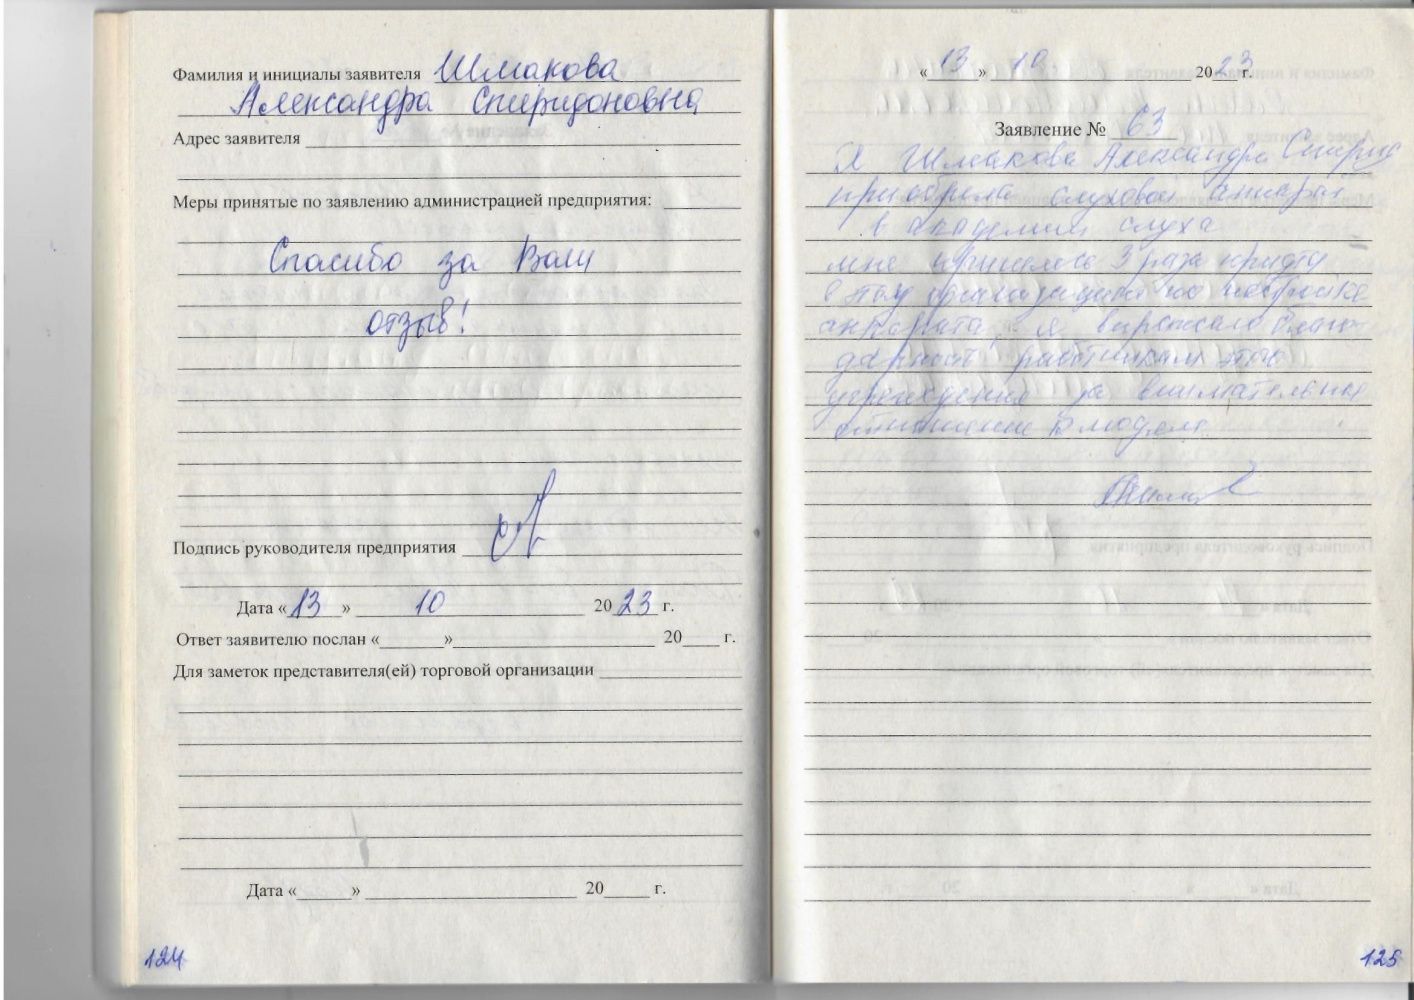 Фамилия и инициалы заявителя Шмакова
Александра Спиридоновна
Адрес заявителя
Меры принятые по заявлению администрацией предприятия:
Спасибо за Ваш
отзыв!
Подпись руководителя предприятия
Дата «13» 10 2023 г.
Ответ заявителю послан «______»______ 20___ г.
Для заметок представителя(ей) торговой организации
Дата «______» ______ 20____ г.
124
«13» 10. 2023 г.
Заявление № 63
Я Шмакова Александра Спирид
приобрела слуховой аппарат
в академии слуха
мне пришлось 3 раза придти
в эту организацию по настройке
аппарата, я выражаю благо-
дарность работникам этого
учреждения за внимательные
отношение к людям
125